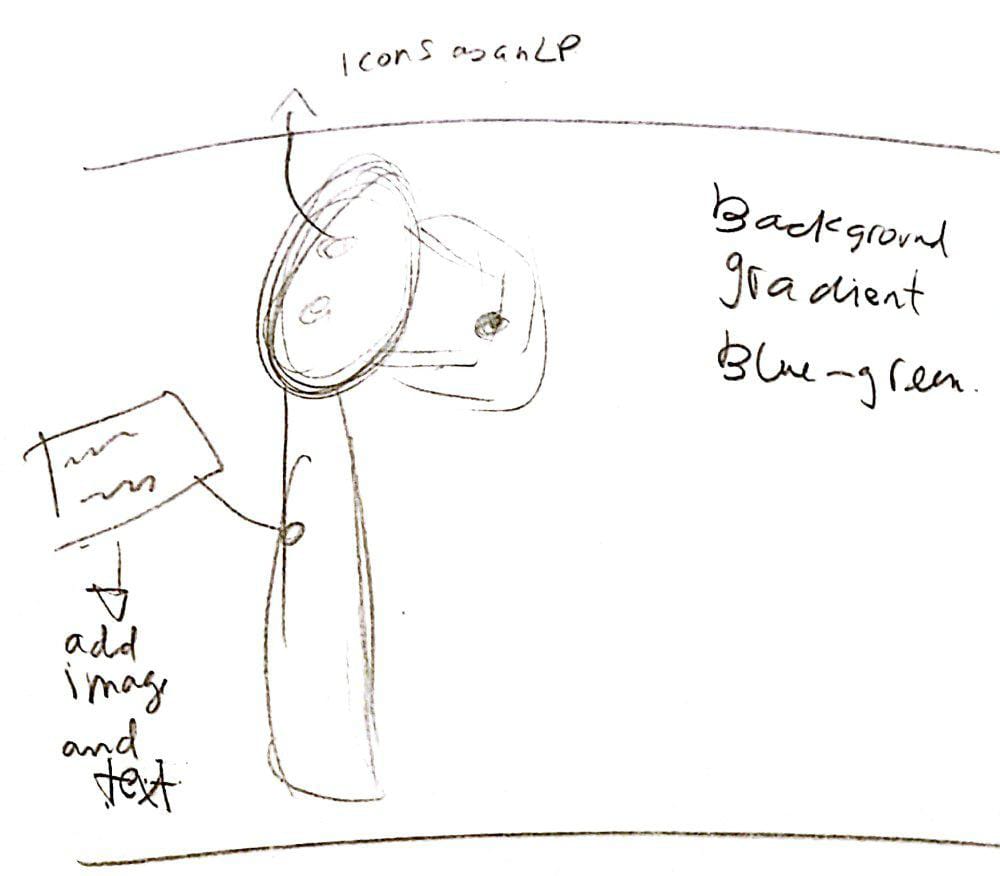 Icons as an LP
Background
gradient
Blue-green.
add
image
and
text